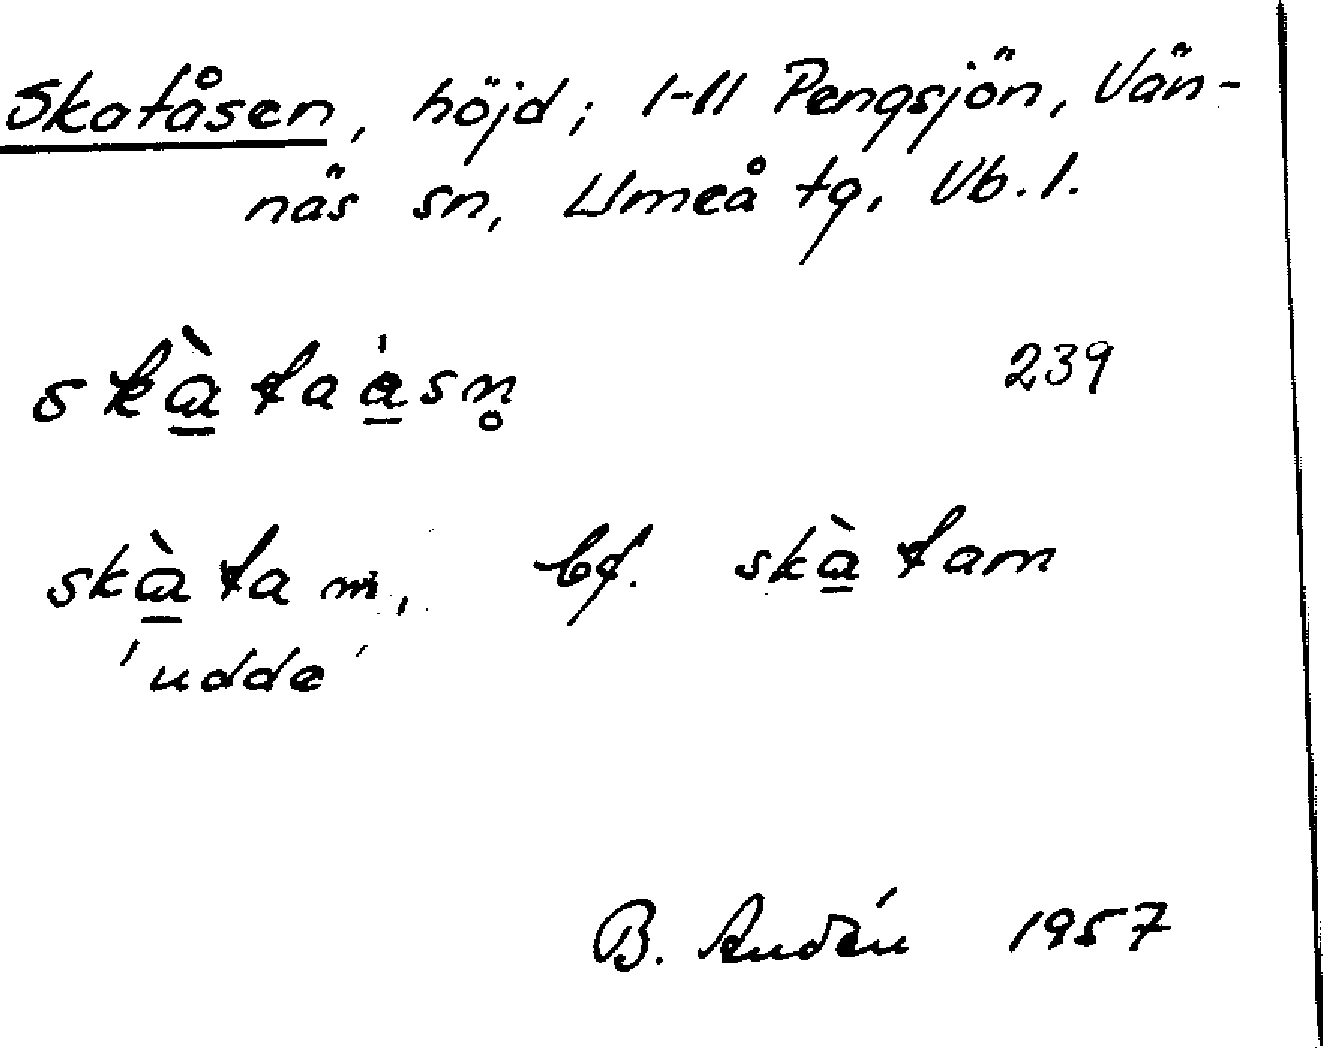 Skatåsen, höjd; 1-11 Pengsjön, Vän-
näs sn, Umeå tg, Vb. l.
skà̱taá̱sn̥ 239
skà̱ta m., bf. skà̱tam
'udde'
B. Andén 1957